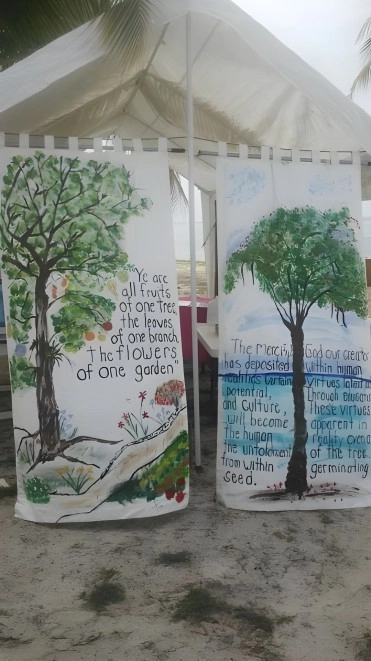 "Ye are
all fruits
of one Tree,
the leaves
of one branch,
the flowers
of one garden"
The God our creator
has deposited within human
realities certain virtues latent
potential, Through Education
and culture, These virtues
will become apparent in
the human reality even
the unfoldment of the Tree
from within germinating
seed.